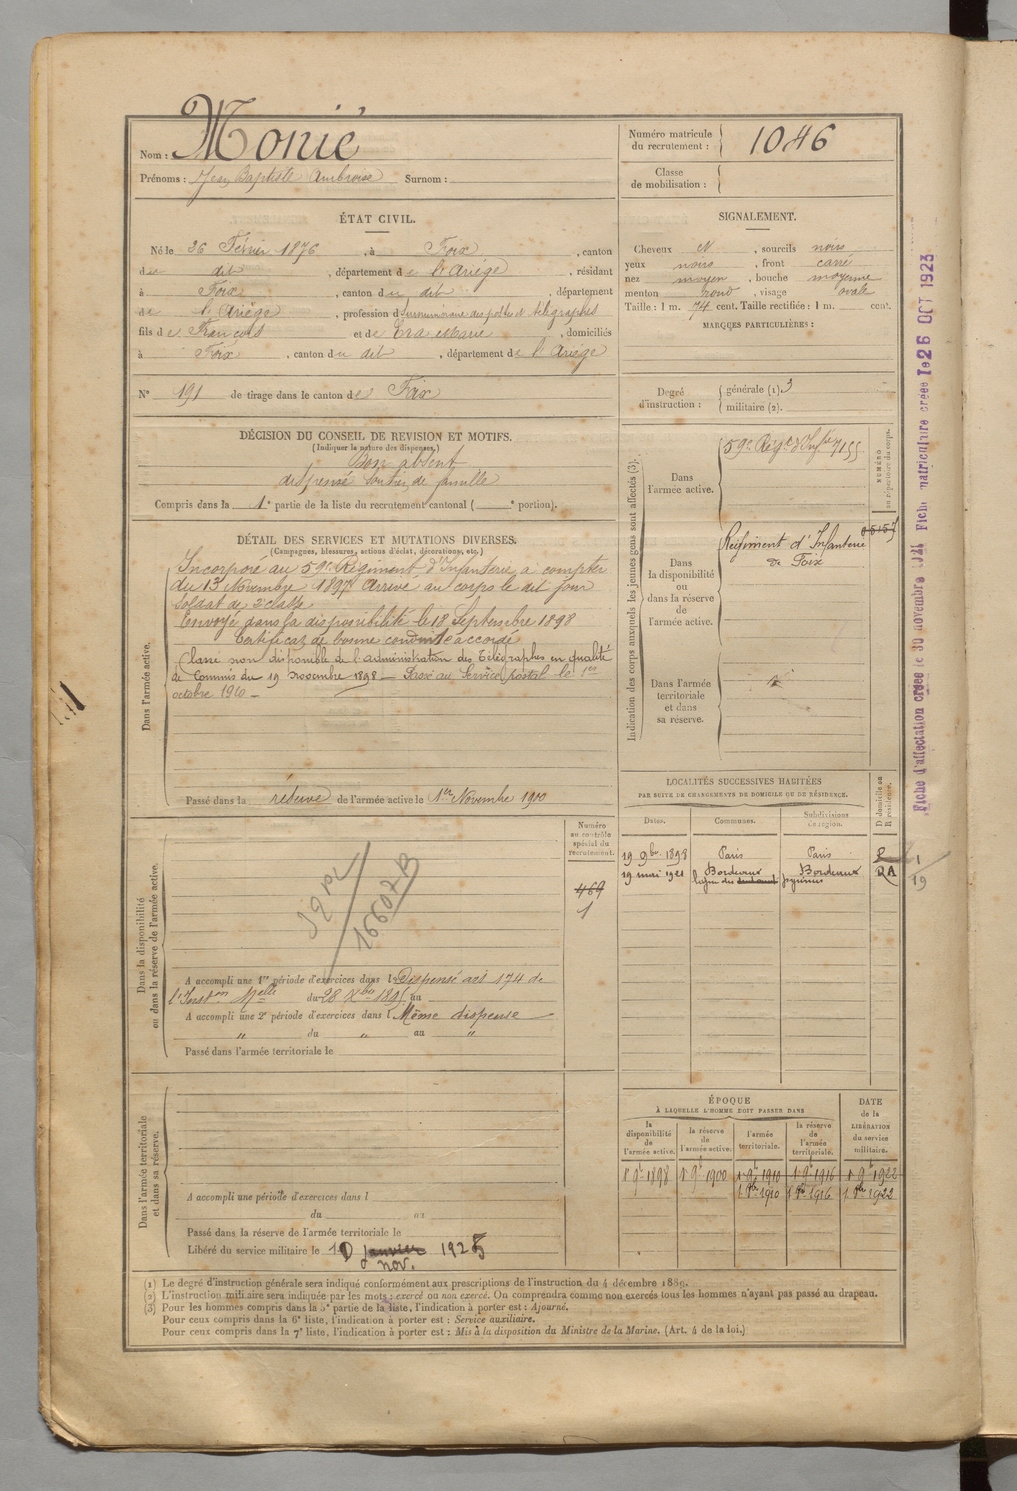 Nom : Monié
Prénoms : Jean Baptiste Ambroise Surnom :
Numéro matricule du recrutement : 1046
Classe de mobilisation :
ÉTAT CIVIL.
Né le 26 Février 1876, à Foix, canton
de dit, département de l'Ariége, résidant
à Foix, canton du dit, département
de l'Ariége, profession de surnuméraire des postes et télégraphes
fils de François et de Era Marie, domiciliés
à Foix, canton du dit, département de l'Ariége
N° 191 de tirage dans le canton de Foix
SIGNALEMENT.
Cheveux N, sourcils noirs
yeux noirs, front carré
nez moyen, bouche moyenne
menton rond, visage ovale
Taille : 1 m. 74 cent. Taille rectifiée : 1 m. cent.
MARQUES PARTICULIÈRES :
Degré d'instruction : générale (1). 3
militaire (2).
DÉCISION DU CONSEIL DE REVISION ET MOTIFS.
(Indiquer la nature des dispenses.)
Bon absent
dispensé soutien de famille
Compris dans la 1e partie de la liste du recrutement cantonal ( e portion).
DÉTAIL DES SERVICES ET MUTATIONS DIVERSES.
(Campagnes, blessures, actions d'éclat, décorations, etc.)
Dans l'armée active.
Incorporé au 59e Régiment d'Infanterie à compter
du 13 Novembre 1897 Arrivé au corps le dit jour
Soldat de 2e classe
Envoyé dans la disponibilité le 18 Septembre 1898
Certificat de bonne conduite accordé
Classé non disponible de l'administration des Télégraphes en qualité
de Commis du 19 novembre 1898 — Passé au Service postal le 1er
octobre 1910 —
Passé dans la réserve de l'armée active le 1er Novembre 1900
Indication des corps auxquels les jeunes gens sont affectés (3).
NUMÉRO au répertoire du corps.
Dans l'armée active.
59e Régt d'Infrie 7155
Dans la disponibilité ou dans la réserve de l'armée active.
Régiment d'Infanterie
de Foix
Dans l'armée territoriale et dans sa réserve.
LOCALITÉS SUCCESSIVES HABITÉES
PAR SUITE DE CHANGEMENTS DE DOMICILE OU DE RÉSIDENCE.
Dates. Communes. Subdivisions de région. D domicile ou R résidence.
19 9bre 1898 Paris Paris R
19 mai 1921 Bordeaux Bordeaux
1
19
Dans la disponibilité ou dans la réserve de l'armée active.
Numéro au contrôle spécial du recrutement.
469
1
16607B
A accompli une 1re période d'exercices dans l Dispensé art 174 de
l'Inston Melle du 28 Xbre 1895 au
A accompli une 2e période d'exercices dans l Même dispense
" du " au "
Passé dans l'armée territoriale le
Dans l'armée territoriale et dans sa réserve.
A accompli une période d'exercices dans l
du au
Passé dans la réserve de l'armée territoriale le
Libéré du service militaire le 10 janvier 1925
nov.
ÉPOQUE
À LAQUELLE L'HOMME DOIT PASSER DANS
la disponibilité de l'armée active. la réserve de l'armée active. l'armée territoriale. la réserve de l'armée territoriale. DATE de la LIBÉRATION du service militaire.
1r 9e 1898 1r 9e 1900 1r 9e 1910 1r 9e 1916 1r 9e 1922
1 8bre 1910 1 8bre 1916 1 8bre 1922
(1) Le degré d'instruction générale sera indiqué conformément aux prescriptions de l'instruction du 4 décembre 1889.
(2) L'instruction militaire sera indiquée par les mots : exercé ou non exercé. On comprendra comme non exercés tous les hommes n'ayant pas passé au drapeau.
(3) Pour les hommes compris dans la 5e partie de la liste, l'indication à porter est : Ajourné.
Pour ceux compris dans la 6e liste, l'indication à porter est : Service auxiliaire.
Pour ceux compris dans la 7e liste, l'indication à porter est : Mis à la disposition du Ministre de la Marine. (Art. 4 de la loi.)
Fiche d'affectation créée le 30 novembre Fiche matriculaire créée le 26 OCT 1923